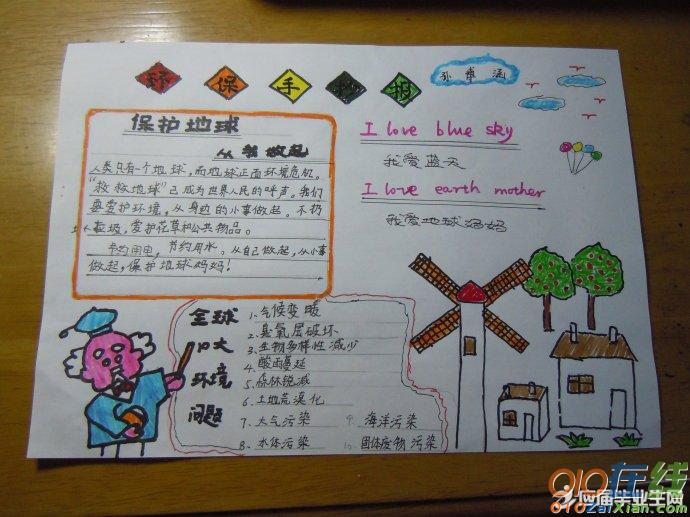 环保手抄报
保护地球
从我做起
人类只有一个地球，而地球正面环境危机。
"救救地球"已成为世界人民的呼声。我们
要爱护环境，从身边的小事做起。不扔
垃圾，爱护花草和公共物品。
节约用电，节约用水。从自己做起，从小事
做起，保护地球妈妈！
I love blue sky
我爱蓝天
I love earth mother
我爱地球妈妈
全球
十大
环境
问题
1.气候变暖
2.臭氧层破坏
3.生物多样性减少
4.酸雨蔓延
5.森林锐减
6.土地荒漠化
7.大气污染
8.水体污染
9.海洋污染
10.固体废物污染
010在线
应届毕业生网
010zaixian.com